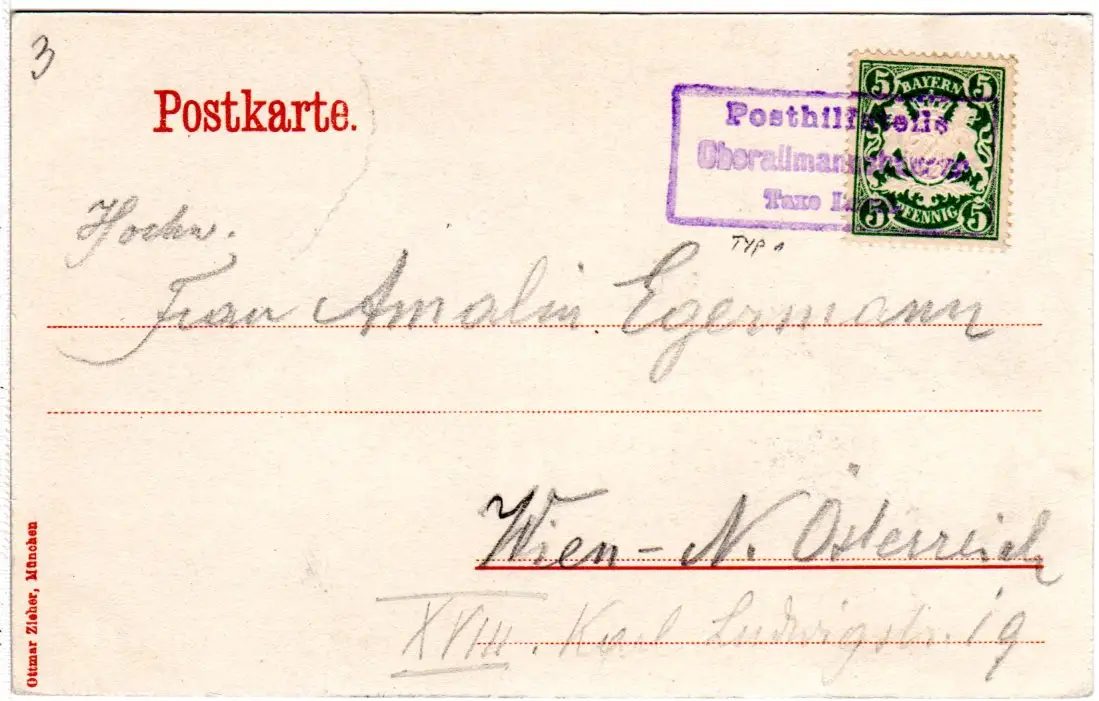 3
Postkarte.
BAYERN
5 5
Posthilfstelle
Oberallmannshausen
Taxe
5 PFENNIG 5
TYP 1
Hochw.
Frau Amalin Egermann
Wien - N. Österreich
XVIII. Karl Ludwigstr. 19
Ottmar Zieher, München